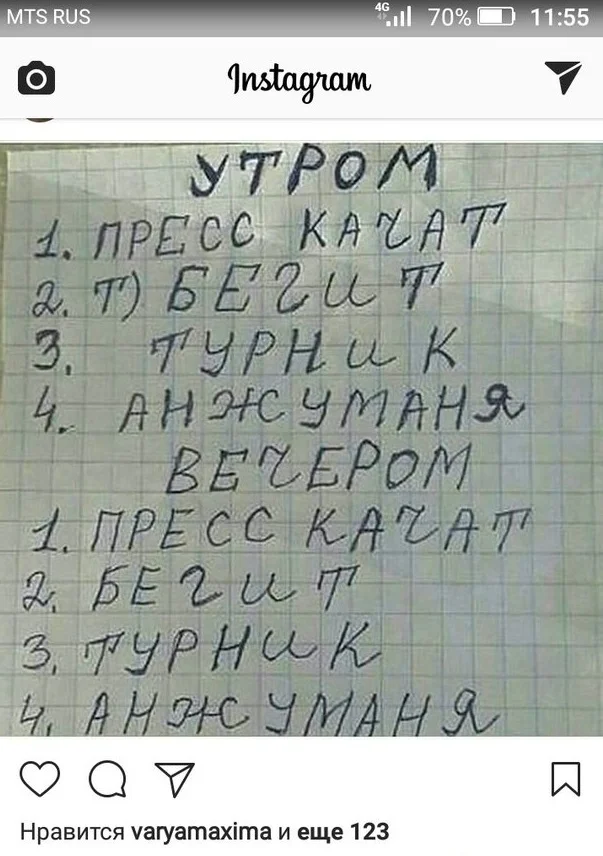 MTS RUS 4G 70% 11:55
Instagram
УТРОМ
1. ПРЕСС КАЧАТ
2. Т) БЕГИТ
3. ТУРНИК
4. АНЖУМАНЯ
ВЕЧЕРОМ
1. ПРЕСС КАЧАТ
2. БЕГИТ
3. ТУРНИК
4. АНЖУМАНЯ
Нравится varyamaxima и еще 123